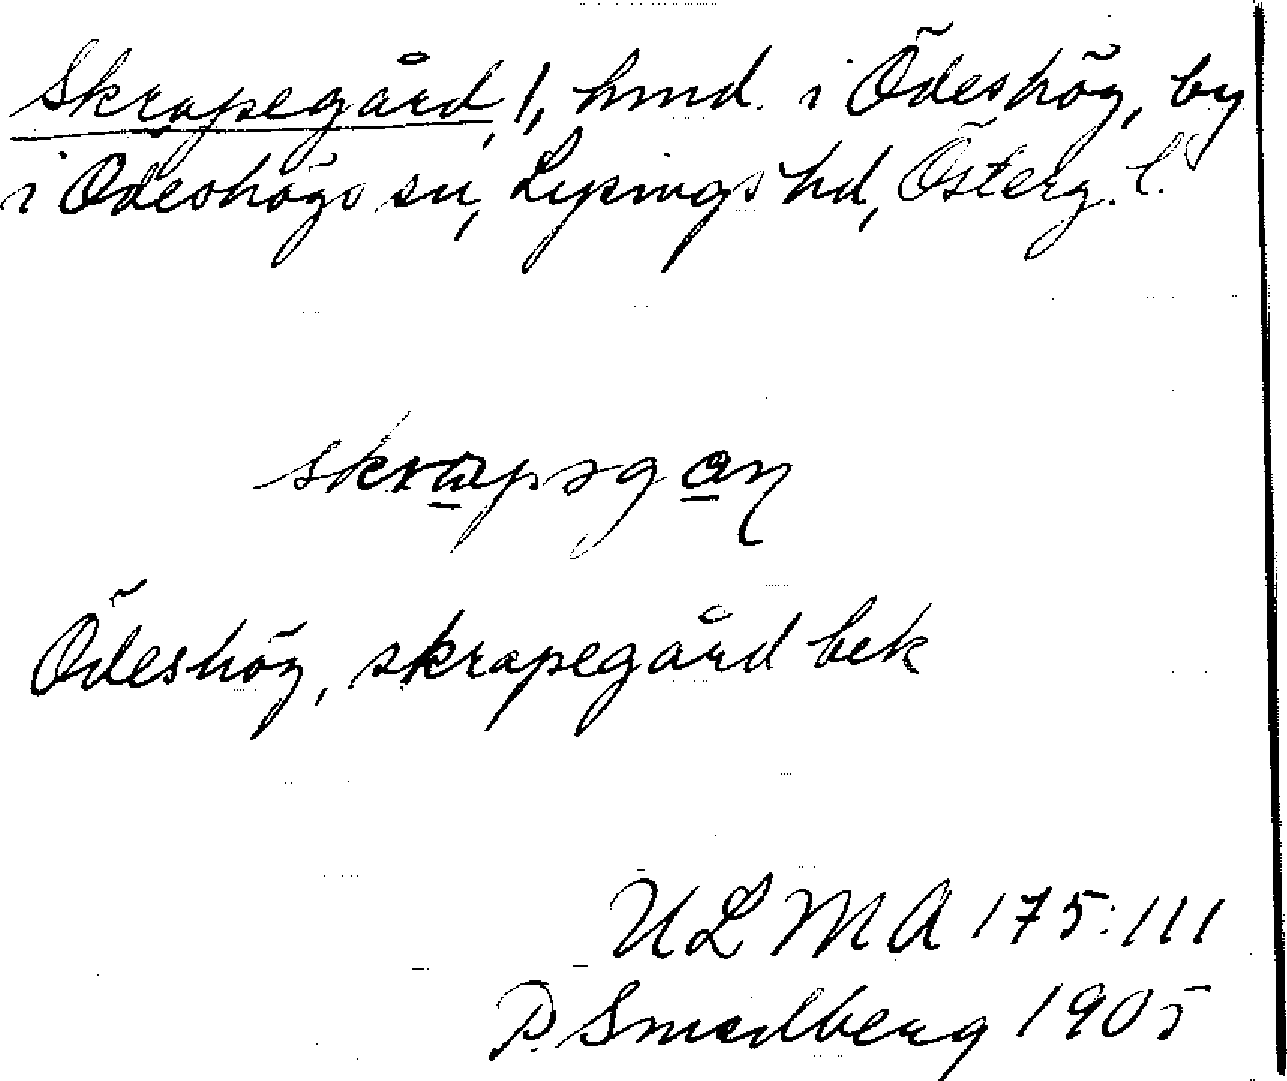 Skrapegård, 1, hmd. i Ödeshög, by
i Ödeshögs sn, Lysings hd, Österg. l.
Ödeshög, skrapegård bek
ULMA 175:111
P. Smedberg 1905